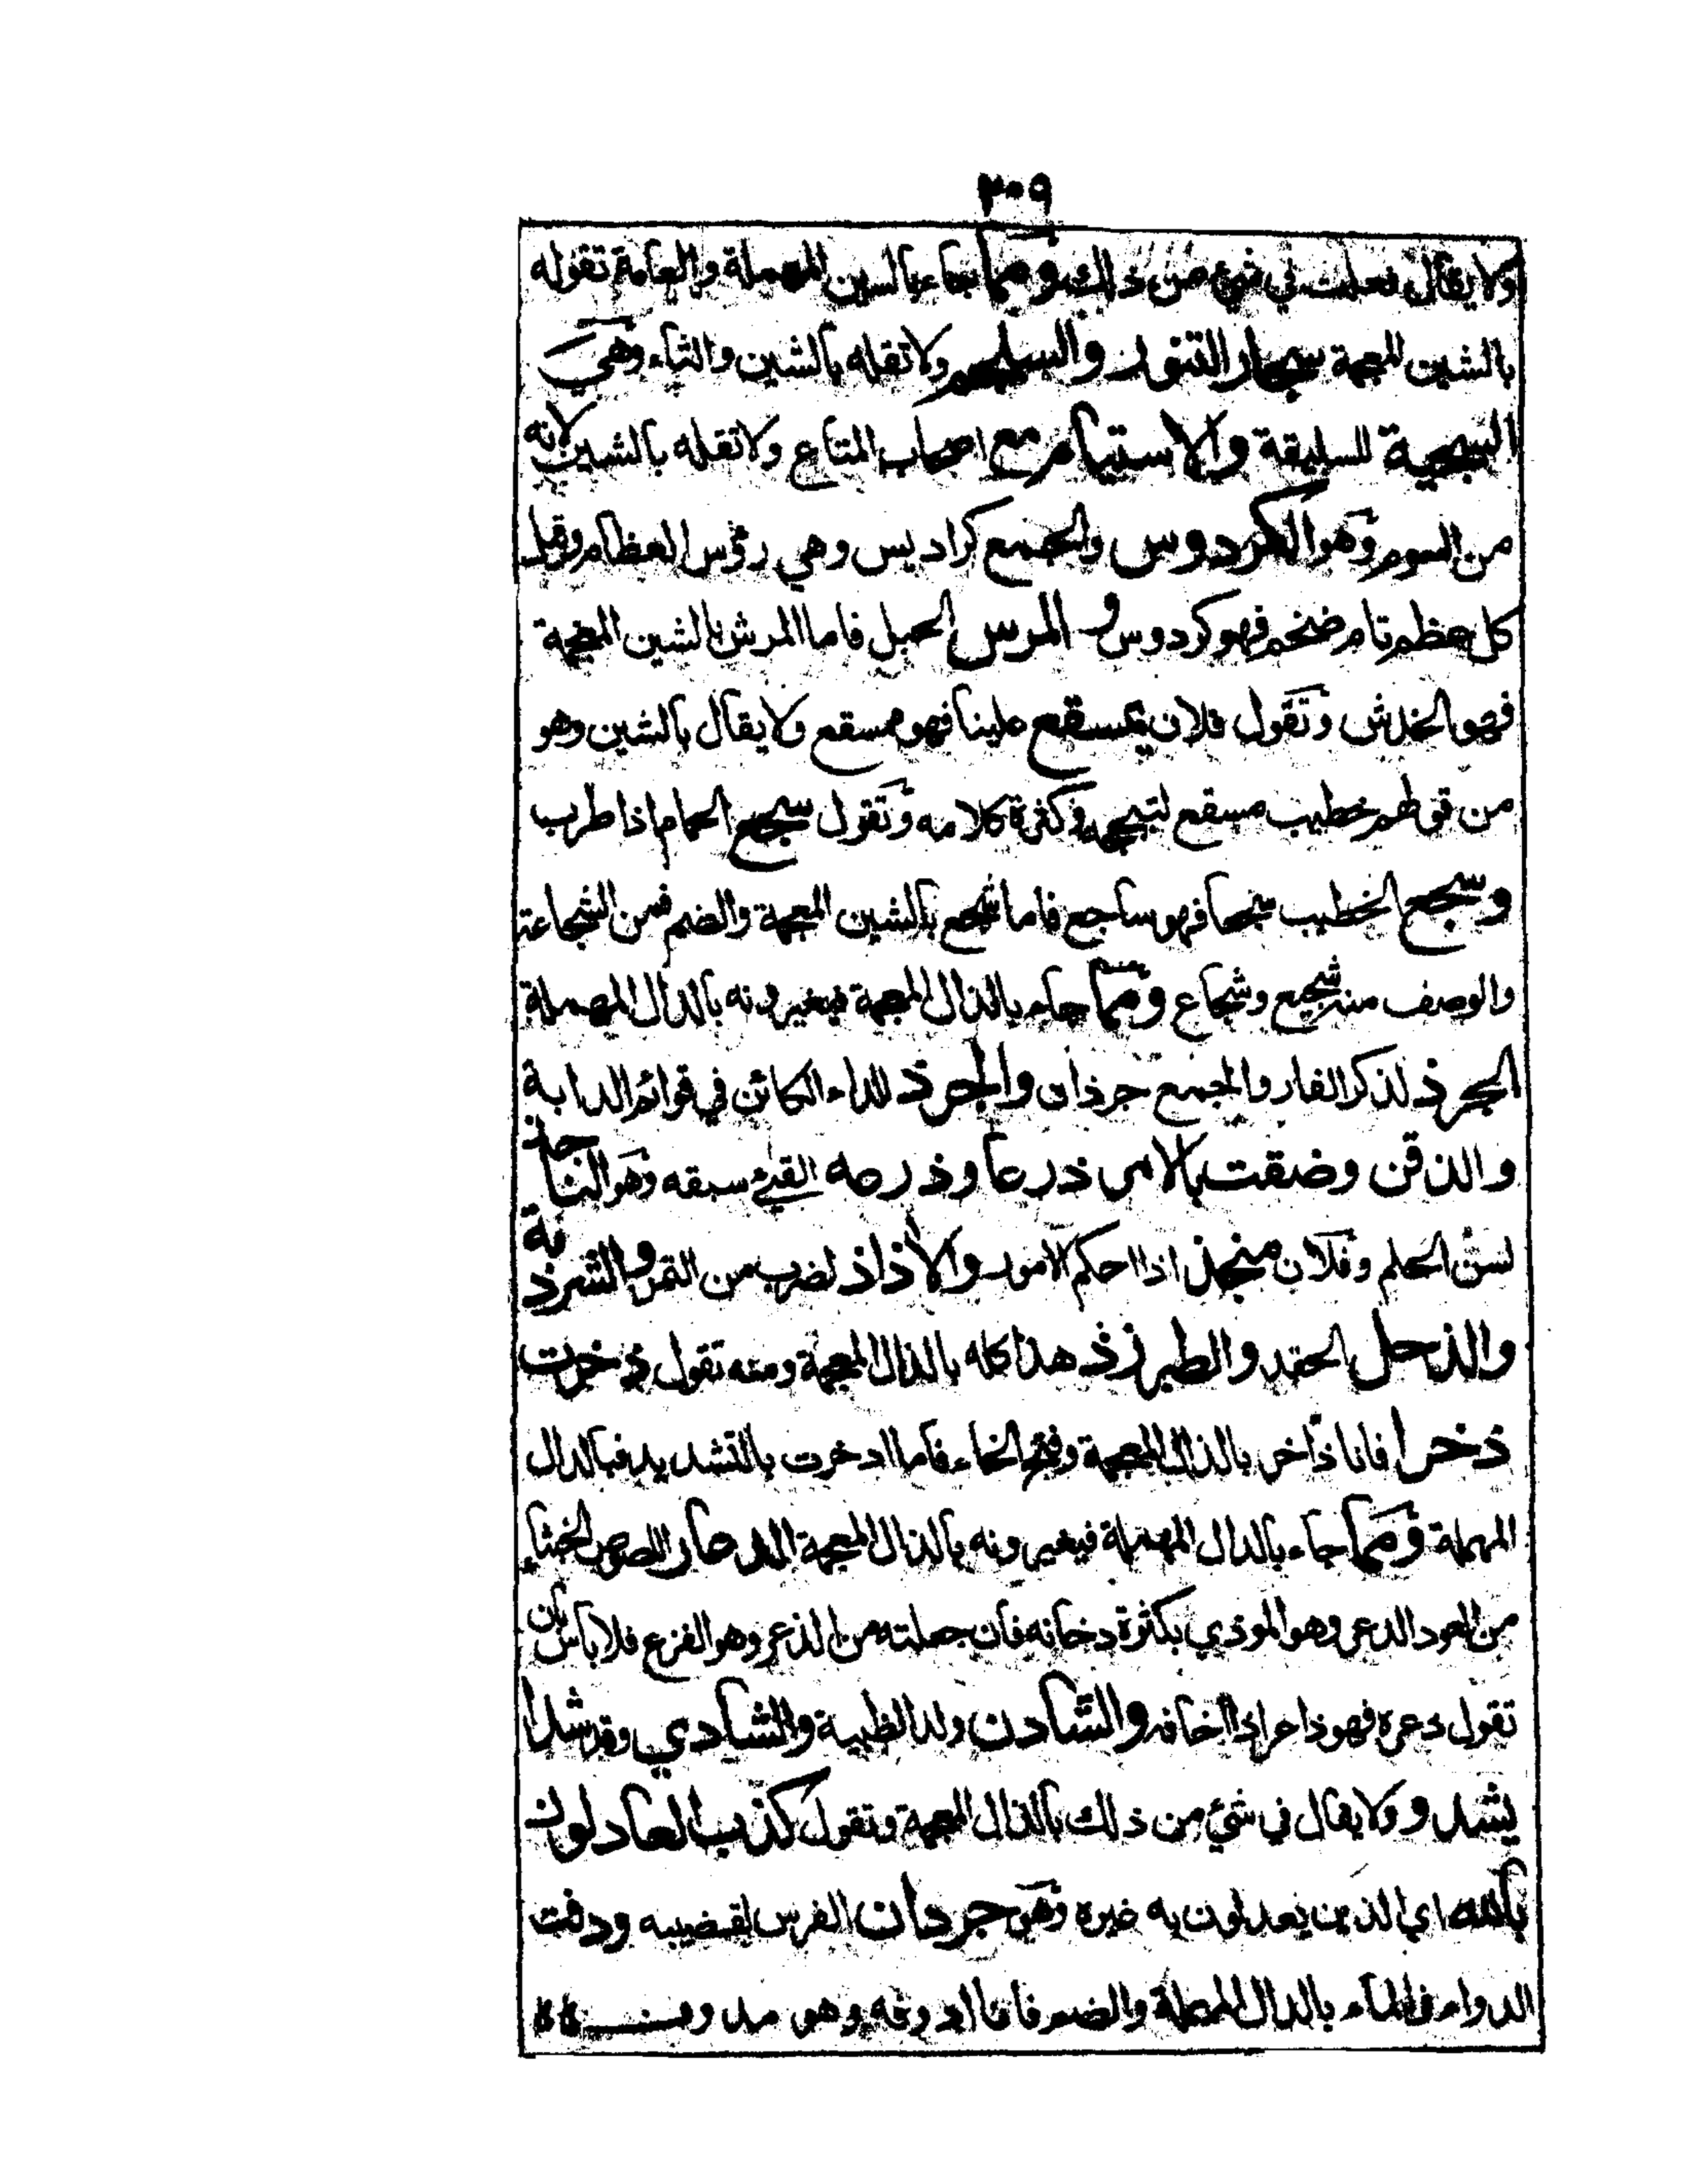 ٣٠٩
ولا يقال فعلت في شيء من ذلك ومما جاء بالسين المهملة والعامة تقوله
بالشين المعجمة سجار التنور والسلجم ولا تقله بالشين والثاء وهي
السجية للسليقة والاستيام مع اصحاب المتاع ولا تقله بالشين لانه
من السوم وهو الكردوس والجمع كراديس وهي رؤس العظام وقيل
كل عظم تام ضخم فهو كردوس و المرس الحبل فاما المرش بالشين المعجمة
فهو الخدش وتقول فلان يسقع علينا فهو مسقع ولا يقال بالشين وهو
من قولهم خطيب مسقع وكثرة كلامه وتقول سجع الحمام اذا طرب
وسجع الخطيب سجعا فهو ساجع فاما شجع بالشين المعجمة والضم فمن الشجاعة
والوصف منه شجيع وشجاع ومما جاء بالذال المعجمة فيغيرونه بالدال المهملة
الجرذ لذكر الفار والجمع جرذان والجرذ للداء الكائن في قوائم الدابة
والذقن وضقت بالامر ذرعا وذرعه القيء سبقه وهو الناجذ
لسن الحلم وفلان منجذ اذا احكم الامور والازاذ لضرب من التمر والشرذ بة
والذحل الحقد والطبرزذ هذا كله بالذال المعجمة ومنه تقول ذخرت
ذخرا فانا ذاخر بالذال المعجمة وفتح الخاء فاما ادخرت بالتشديد فبالدال
المهملة ومما جاء بالدال المهملة فيغيرونه بالذال المعجمة الدعار اللصوص الخبثاء
من العود الدعر وهو الموذي بكثرة دخانه فان جعلته من الذعر وهو الفزع فلا باس بان
تقول ذعره فهو ذاعر اذا اخافه والشادن ولد الظبية والشادي وقد شدا
يشدو ولا يقال في شيء من ذلك بالذال المعجمة وتقول كذب العادلون
بالله اي الذين يعدلون به غيره وهو جردان الفرس لقضيبه ودفت
الدواء في الماء بالدال المهملة والضم فانا ادوفه وهو مدوف